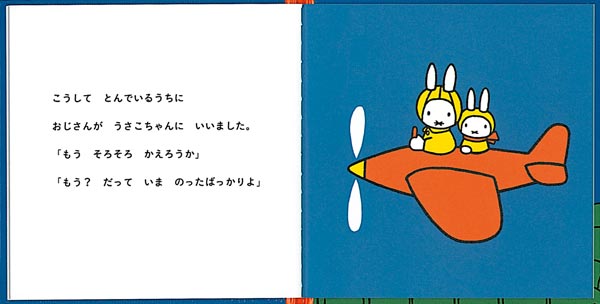 こうして　とんでいるうちに
おじさんが　うさこちゃんに　いいました。
「もう　そろそろ　かえろうか」
「もう？　だって　いま　のったばっかりよ」